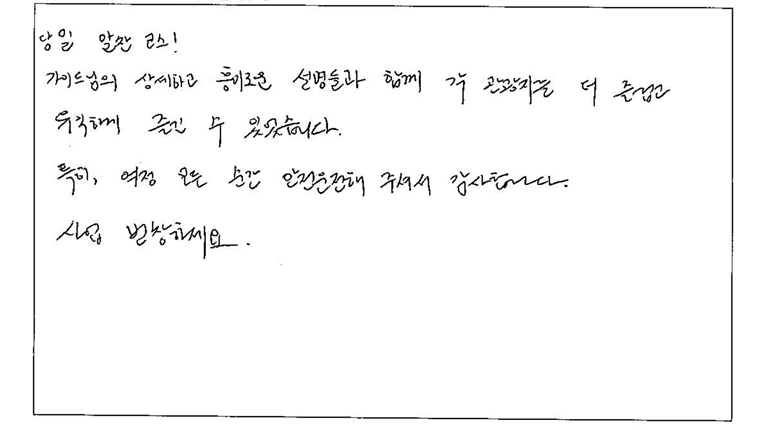 당일 알찬 코스!
가이드님의 상세하고 흥미로운 설명들과 함께 각 관광지를 더 즐겁고
유익하게 즐길 수 있었습니다.
특히, 여정 모든 순간 안전운전해 주셔서 감사합니다.
사업 번창하세요.